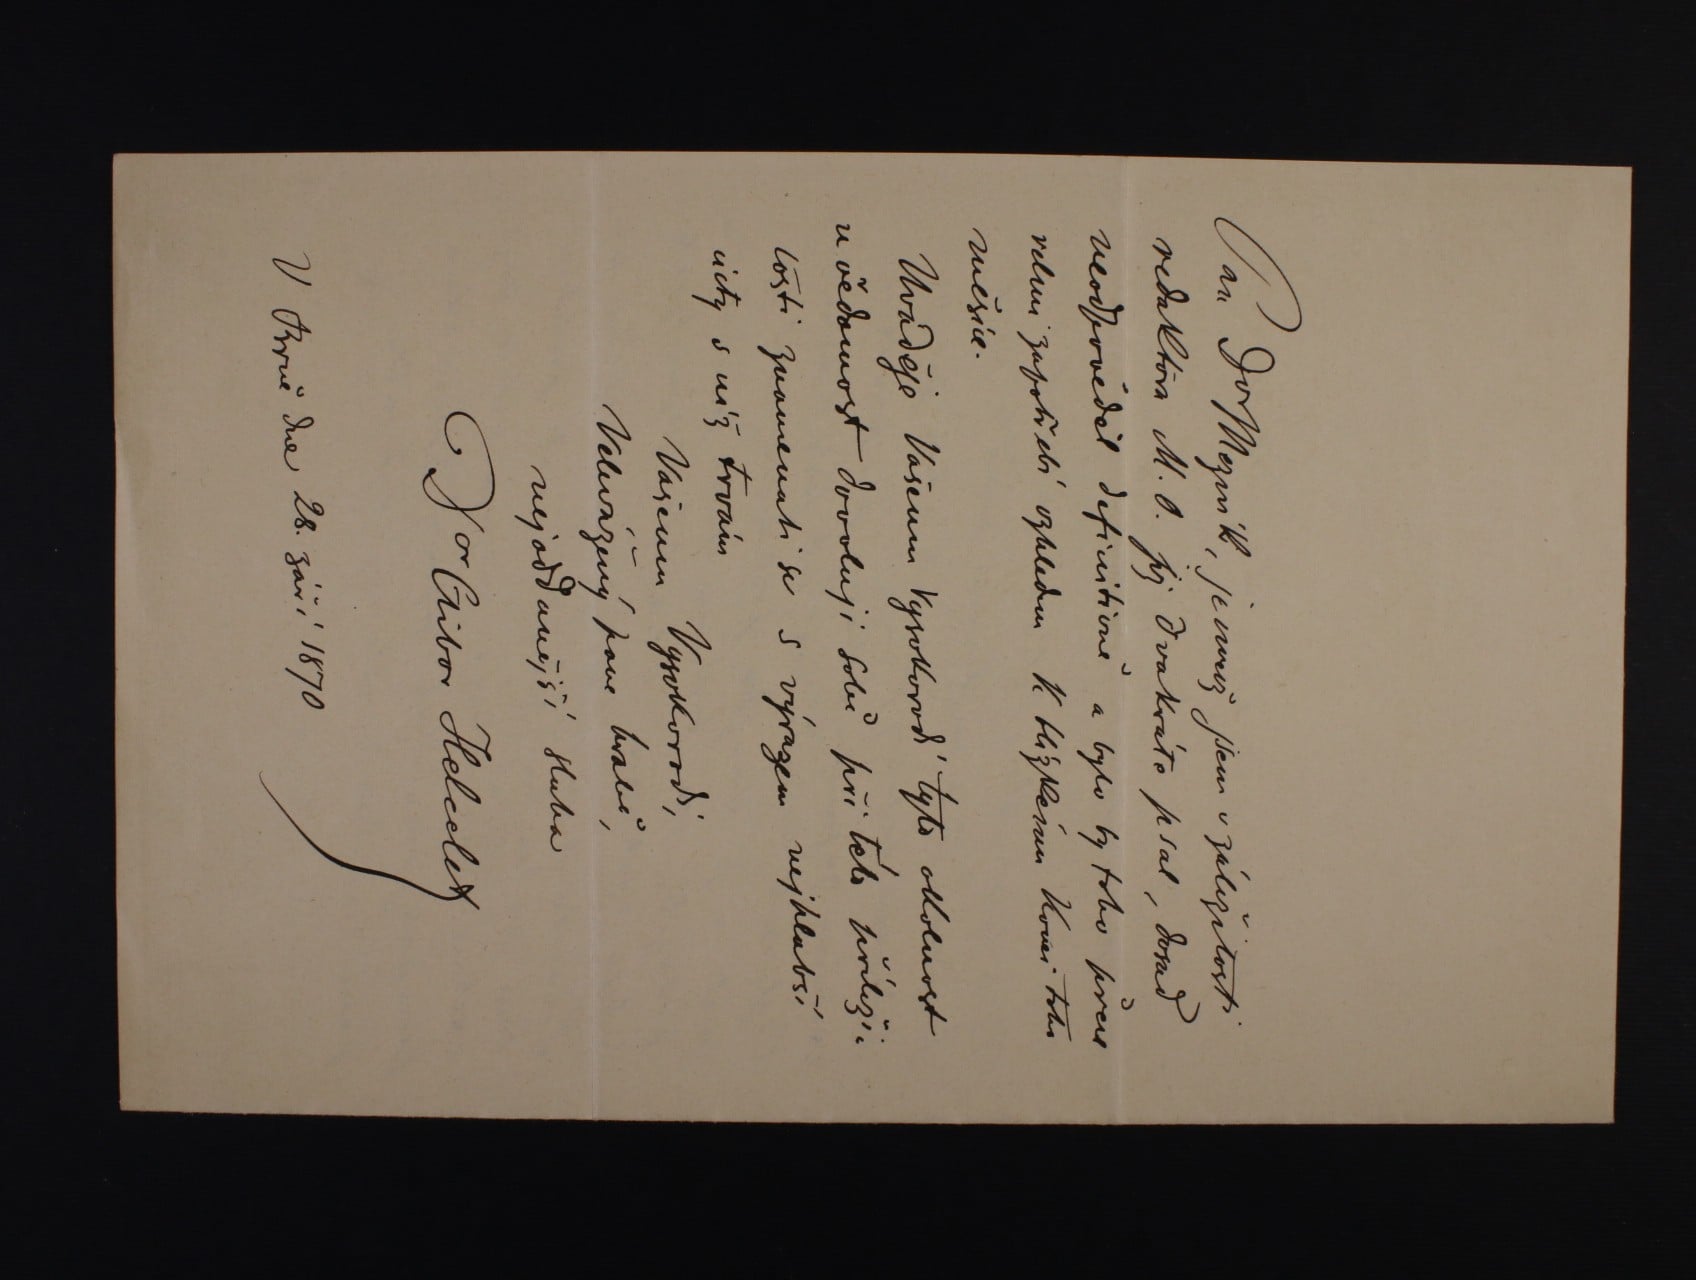 Pan Dor Mezník, jemuž jsem v záležitosti
redaktora M. O. již dvakráte psal, dosud
neodpověděl definitivně a bylo by toho přece
velmi zapotřebí vzhledem k blízkému konci toho
měsíce.
Uváděje Vašemu Vysokorodí tyto okolnost
u vědomost dovoluji sobě při této příleži
tosti znamenati se s výrazem nejhlubší
úcty s níž trvám
Vašemu Vysokorodí,
Velevážený pane hrabě,
nejoddanější sluha
Dor Ctibor Helcelet
V Brně dne 28. září 1870